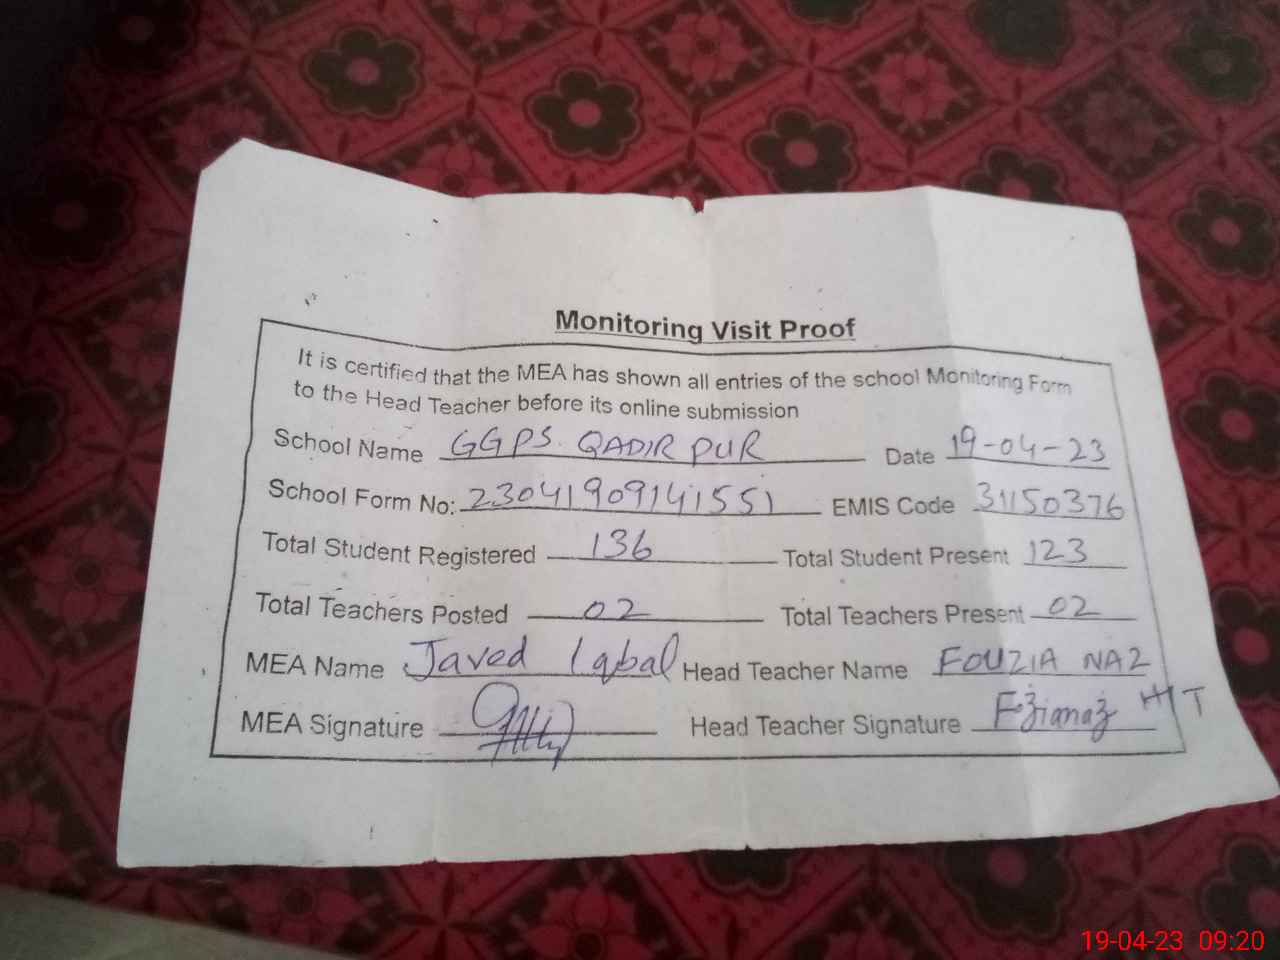 Monitoring Visit Proof
It is certified that the MEA has shown all entries of the school Monitoring Form
to the Head Teacher before its online submission
School Name GGPS. QADIR PUR Date 19-04-23
School Form No: 23041909141551 EMIS Code 31150376
Total Student Registered 136 Total Student Present 123
Total Teachers Posted 02 Total Teachers Present 02
MEA Name Javed Iqbal Head Teacher Name FOUZIA NAZ
MEA Signature Head Teacher Signature H/T
19-04-23 09:20